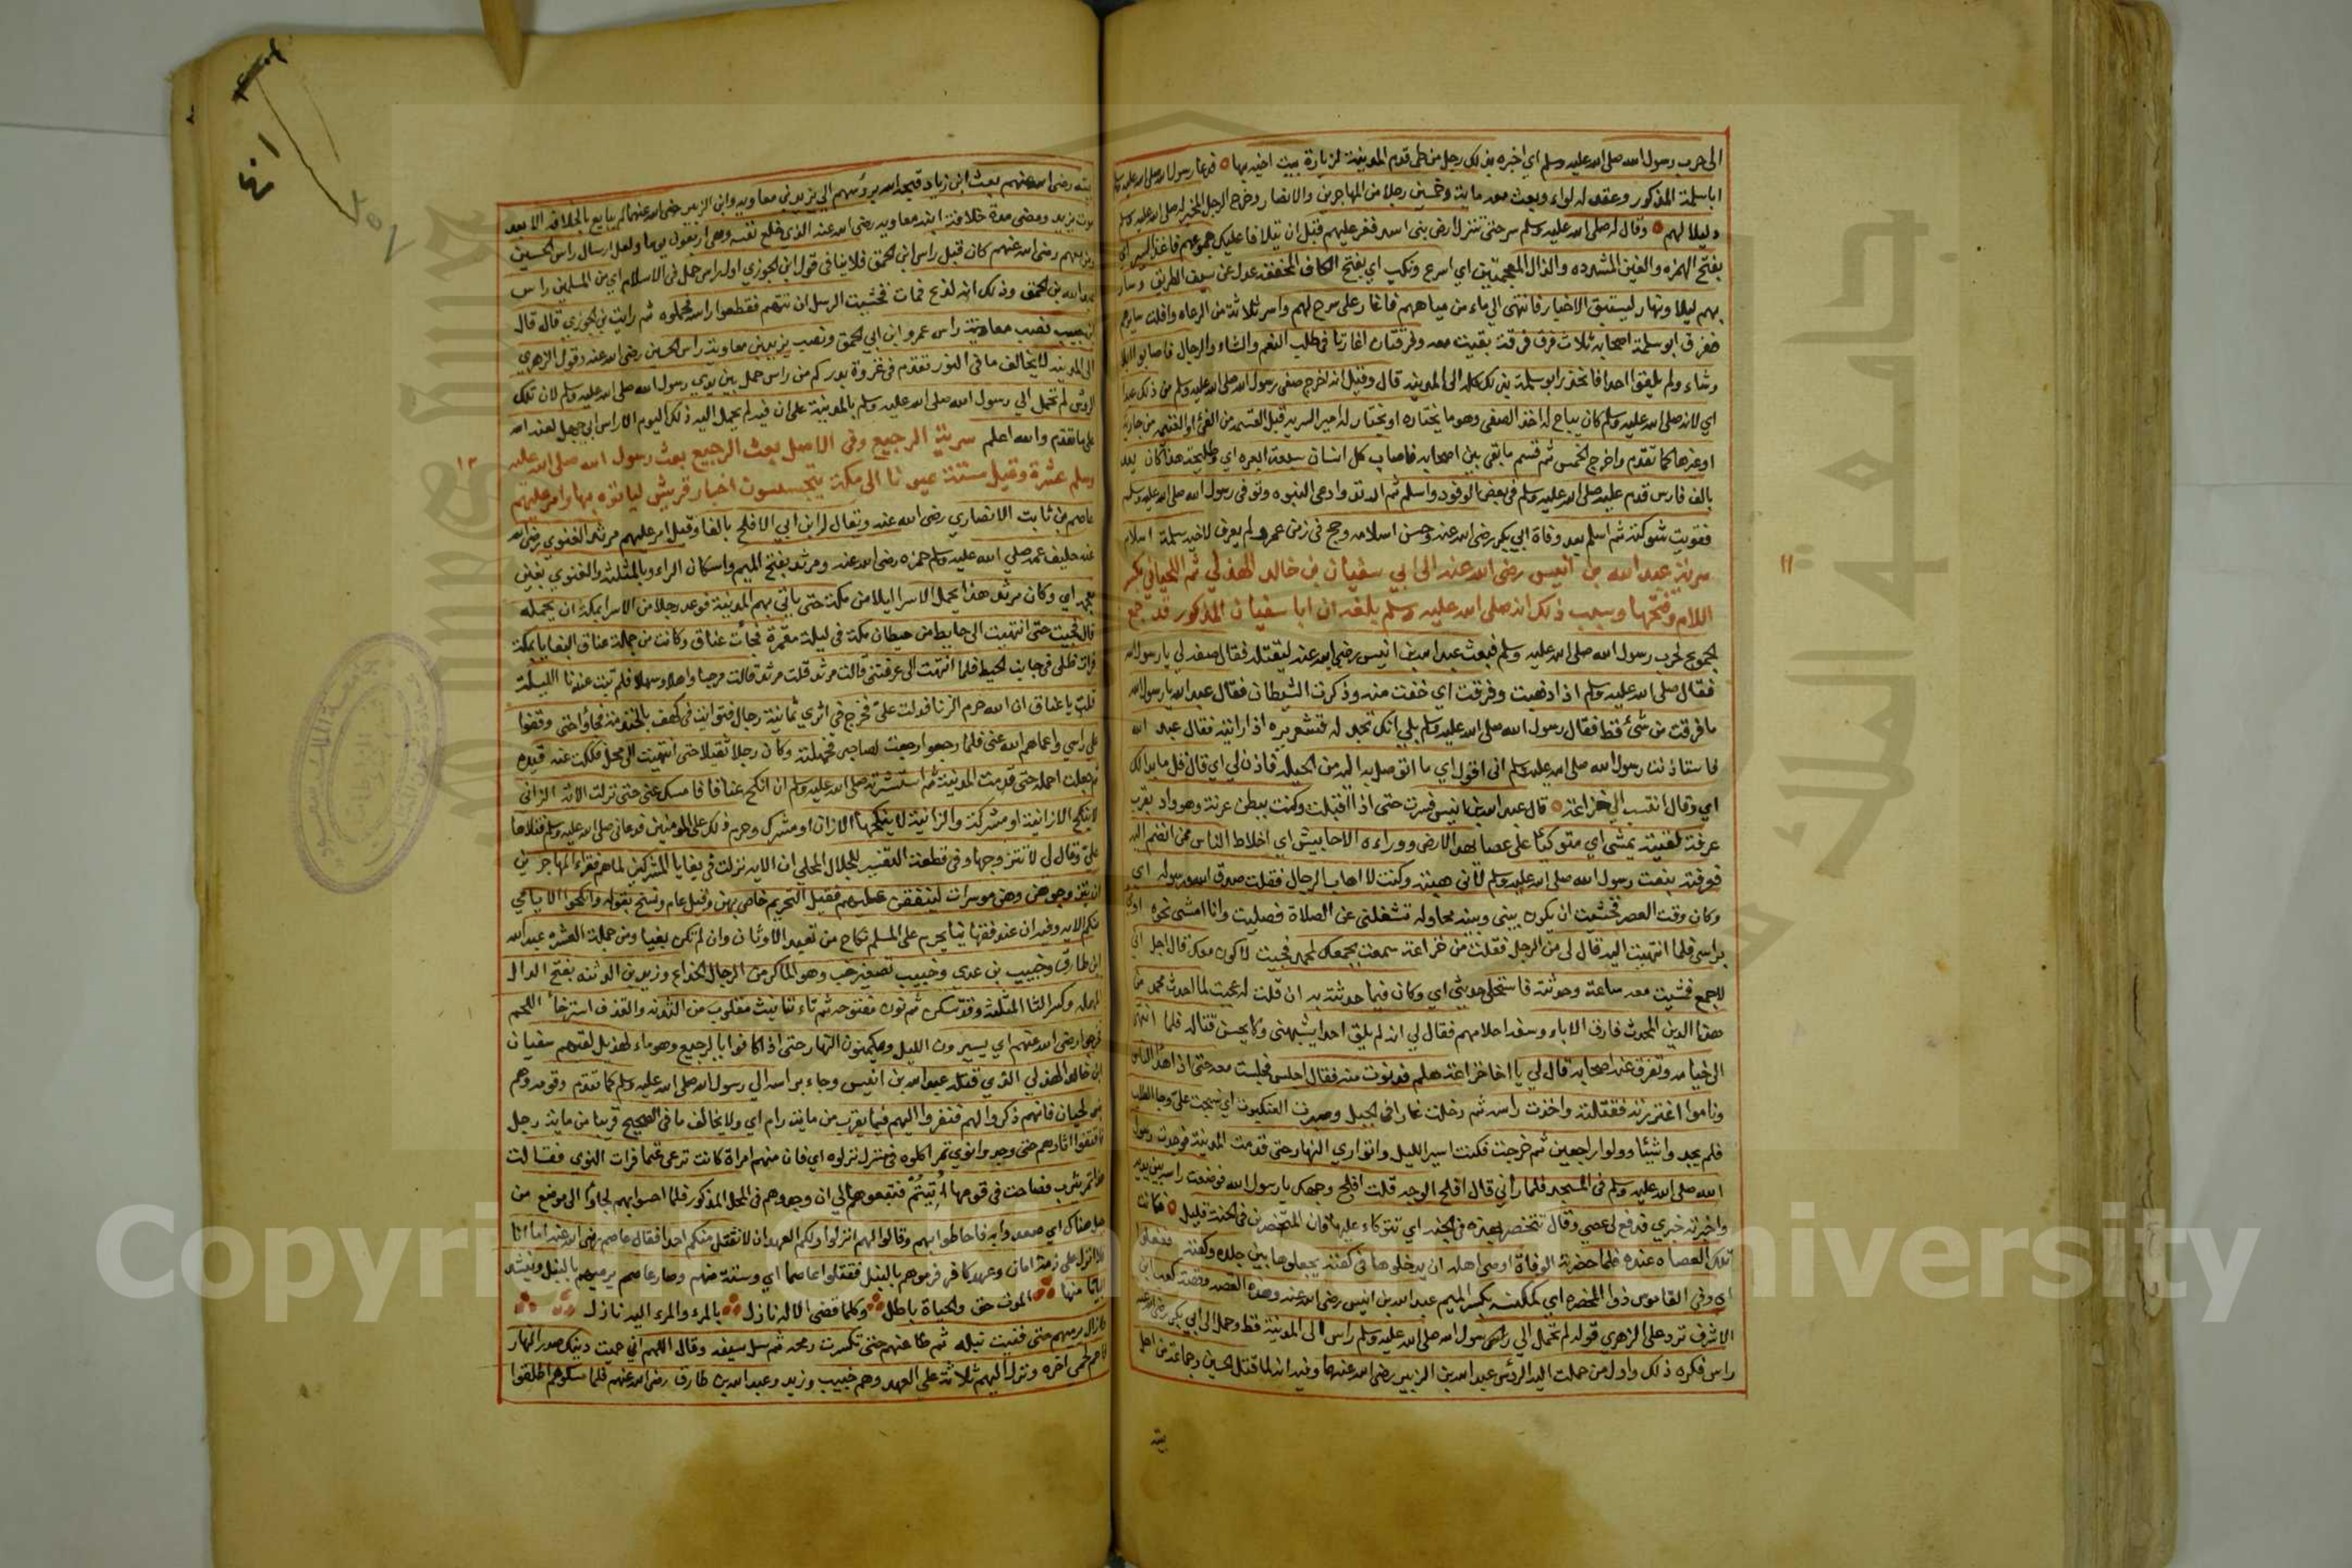 الى حرب رسول الله صلى الله عليه وسلم اي اخبره بذلك رجل من طي قدم المدينة لزيارة بنت اخيه بها فدعا رسول الله صلى الله عليه وسلم
ابا سلمة المذكور وعقد له لواء وبعث معه مائة وخمسين رجلا من المهاجرين والانصار وخرج الرجل المخبر له صلى الله عليه وسلم
دليلا لهم وقال له صلى الله عليه وسلم سر حتى تنزل ارض بني اسد فغر عليهم قبل ان تلاقا عليك جموعهم فاغذ السير اي
بفتح الهمزه والغين المشدده والذال المعجمتين اي اسرع ونكب اي بفتح الكاف المخففه عدل عن سيف الطريق وسار
بهم ليلا ونهارا ليسبق الاخبار فانتهى الى ماء من مياههم فاغار على سرح لهم واسر ثلاثة من الرعاه وافلت سايرهم
ففرق ابو سلمة اصحابه ثلاث فرق فرقة بقيت معه وفرقتان اغارتا في طلب النعم والشاء والرجال فاصابوا ابلا
وشاء ولم يلقوا احدا فانحدر ابو سلمة بذلك كله الى المدينه قال وقيل انه اخرج صفي رسول الله صلى الله عليه وسلم من ذلك عبدا
اي لانه صلى الله عليه وسلم كان يباح له اخذ الصفي وهو ما يختاره او يختار له امير السريه قبل القسمه من الفئ او الغنيمه من جارية
او غيرها كما تقدم واخرج الخمس ثم قسم ما بقي بين اصحابه فاصاب كل انسان سبعة ابعره اي وطليحة هذا كان يعد
بالف فارس قدم عليه صلى الله عليه وسلم في بعض الوفود واسلم ثم ارتد وادعى النبوه وتوفي رسول الله صلى الله عليه وسلم
فقويت شوكته ثم اسلم بعد وفاة ابي بكر رضي الله عنه وحسن اسلامه وحج في زمن عمر ولم يعرف لاخيه سلمة اسلام
سرية عبد الله بن انيس رضي الله عنه الى ابي سفيان بن خالد الهذلي ثم اللحياني بكسر
اللام وفتحها وسبب ذلك انه صلى الله عليه وسلم بلغه ان ابا سفيان المذكور قد جمع
الجموع لحرب رسول الله صلى الله عليه وسلم فبعث عبد الله بن انيس رضي الله عنه ليقتله فقال صفه لي يا رسول الله
فقال صلى الله عليه وسلم اذا رايته هبته وفرقت اي خفت منه وذكرت الشيطان فقال عبد الله يا رسول الله
ما فرقت من شئ قط فقال رسول الله صلى الله عليه وسلم بلى انك تجد له قشعريره اذا رايته فقال عبد الله
فاستاذنت رسول الله صلى الله عليه وسلم اني اقول اي ما اتوصل به اليه من الحيلة فاذن لي اي قال قل ما بدا لك
اي وقال انتسب الى خزاعة قال عبد الله بن انيس فسرت حتى اذا اقبلت وكنت ببطن عرنة وهو واد بقرب
عرفة لقيته يمشي اي متوكئا على عصا يهد الارض ووراءه الاحابيش اي اخلاط الناس ممن انضم اليه
فعرفته بنعت رسول الله صلى الله عليه وسلم لاني هبته وكنت لا اهاب الرجال فقلت صدق الله ورسوله اي
وكان وقت العصر فخشيت ان يكون بيني وبينه محاوله تشغلني عن الصلاة فصليت وانا امشي نحوه اومئ
براسي فلما انتهيت اليه قال لي من الرجل فقلت من خزاعة سمعت بجمعك لمحمد فجئت لاكون معك قال اجل اني
لاجمع فمشيت معه ساعة وحدثته فاستحلى حديثي اي وكان فيما حدثته به ان قلت له عجبت لما احدث محمد من
هذا الدين المحدث فارق الاباء وسفه احلامهم فقال لي انه لم يلق احدا يشبهني ولا يحسن قتاله فلما انتهى
الى خبائه وتفرق عنه اصحابه قال لي يا اخا خزاعة هلم فدنوت منه فقال اجلس فجلست معه حتى اذا هدا الناس
وناموا اغتررته فقتلته واخذت راسه ثم دخلت غارا في الجبل وصيرت العنكبوت اي نسجت علي وجا الطلب
فلم يجدوا شيئا وولوا راجعين ثم خرجت فكنت اسير الليل واتواري النهار حتى قدمت المدينة فوجدت رسول
الله صلى الله عليه وسلم في المسجد فلما راني قال افلح الوجه قلت افلح وجهك يا رسول الله فوضعت راسه بين يديه
واخبرته خبري فدفع لي عصى وقال تخصر بهذه في الجنه اي توكاء عليها فان المتخصرين في الجنة قليل فكانت
تلك العصاه عنده فلما حضرته الوفاة اوصى اهله ان يدخلوها في كفنه يجعلوها بين جلده وكفنه ففعلوا
اي وفي القاموس ذو المخصره اي كمكنسه بكسر الميم عبد الله بن انيس رضي الله عنه وهذه القصه وقصة كعب ابن
الاشرف ترد على الزهري قوله لم تحمل الى رسول الله صلى الله عليه وسلم راس الى المدينة قط وحمل الى ابي بكر رضي الله عنه
راس فكره ذلك واول من حملت اليه الرؤس عبد الله بن الزبير رضي الله عنهما وفيه انه لما قتل الحسين وجماعة من اهل
بيته
١١
بيته رضي الله عنهم بعث ابن زياد قبحه الله برؤسهم الى يزيد بن معاويه وابن الزبير رضي الله عنهما لم يبايع بالخلافه الا بعد
موت يزيد ومضى مدة خلافة ابنه معاويه رضي الله عنه الذي خلع نفسه وهي اربعون يوما ولعل ارسال راس الحسين
ومن معهم رضي الله عنهم كان قبل راس ابن الحمق فلا ينافي قول ابن الجوزي اول راس حمل في الاسلام اي من المسلمين راس
عبد الله بن الحمق وذلك انه لدغ فمات فخشيت الرسل ان تتهم فقطعوا راسه فحملوه ثم رايت بن الجوزي قال قال
ابن حبيب نصب معاوية راس عمرو ابن ابي الحمق ونصب يزيد بن معاوية راس الحسين رضي الله عنه وقول الزهري
الى المدينه لا يخالف ما في النور تقدم في غزوة بدر كم من راس حمل بين يدي رسول الله صلى الله عليه وسلم لان تلك
الرؤس لم تحمل الى رسول الله صلى الله عليه وسلم بالمدينة على ان فيه لم يحمل اليه ذلك اليوم الا راس ابي جهل لعنه الله
على ما تقدم والله اعلم سرية الرجيع وفي الاصل بعث الرجيع بعث رسول الله صلى الله عليه
وسلم عشرة وقيل ستة عيونا الى مكة يتجسسون اخبار قريش لياتوه بها وامر عليهم
عاصم بن ثابت الانصاري رضي الله عنه ويقال له ابن ابي الافلح بالفا وقيل امر عليهم مرثد الغنوي رضي الله
عنه حليف عمه صلى الله عليه وسلم حمزه رضي الله عنه ومرثد بفتح الميم واسكان الراء وبالمثلثه والغنوي بغين
معجمه اي وكان مرثد هذا يحمل الاسرا ليلا من مكة حتى ياتي بهم المدينة فوعد رجلا من الاسرا بمكة ان يحمله
قال فجيت حتى انتهيت الى حايط من حيطان مكة في ليلة مقمرة فجأت عناق وكانت من جملة عناق البغايا بمكة
فرات ظلي في جانب الحيط فلما انتهت الي عرفتني قالت مرثد قلت مرثد قالت مرحبا واهلا وسهلا فلم تبت عندنا الليلة
قلت يا عناق ان الله حرم الزنا فدلت علي فخرج في اثري ثمانية رجال فتواريت في كهف بالخندمة فجاؤا حتى وقفوا
على راسي واعماهم الله عني فلما رجعوا رجعت لصاحبي فحملته وكان رجلا ثقيلا حتى انتهيت الى محل فككت عنه قيده
ثم جعلت احمله حتى قدمت المدينة ثم استشرته صلى الله عليه وسلم ان انكح عناقا فامسك عني حتى نزلت الآية الزاني
لا ينكح الا زانية او مشركة والزانية لا ينكحها الا زان او مشرك وحرم ذلك على المومنين فدعاني صلى الله عليه وسلم فتلاها
علي وقال لي لا تتزوجها وفي قطعة التفسير للجلال المحلي ان الايه نزلت في بغايا المشركين لما هم فقراء المهاجرين
ان يتزوجوهن وهن موسرات لينفقن عليهم فقيل التحريم خاص بهن وقيل عام ونسخ بقوله وانكحوا الايامي
منكم الايه وفيه ان عند فقهائنا يحرم على المسلم نكاح من تعبد الاوثان وان لم تكن بغيا ومن جملة العشره عبد الله
ابن طارق وخبيب بن عدي وخبيب تصغير خب وهو الماكر من الرجال الخداع وزيد بن الدثنه بفتح الدال
المهمله وكسر الثا المثلثه وقد تسكن ثم نون مفتوحه ثم تاء تانيث مقلوب من الثدنه والثدن استرخاء اللحم
فخرجوا رضي الله عنهم اي يسيرون الليل ويكمنون النهار حتى اذا كانوا بالرجيع وهو ماء لهذيل لقيهم سفيان
ابن خالد الهذلي الذي قتله عبد الله بن انيس وجاء براسه الى رسول الله صلى الله عليه وسلم كما تقدم وقومه وهم
بنو لحيان فانهم ذكروا لهم فنفروا اليهم فيما يقرب من مائة رام اي ولا يخالف ما في الصحيح قريبا من ماية رجل
فاقتفوا اثارهم حتى وجدوا نوى تمر اكلوه في منزل نزلوه اي فان منهم امراة كانت ترعى غنما فرات النوى فقالت
هذا تمر يثرب فصاحت في قومها أُتِيتُم فتبعوهم الى ان وجدوهم في المحل المذكور فلما احسوا بهم لجاؤا الى موضع من
جبل هناك اي صعدوا اليه فاحاطوا بهم وقالوا لهم انزلوا ولكم العهد ان لا نقتل منكم احدا فقال عاصم رضي الله عنه اما انا
فلا انزل على ذمة امان وعهد كافر فرموهم بالنبل فقتلوا عاصما اي وستة منهم وصار عاصم يرميهم بالنبل وينشد
ابياتا منها الموت حق والحياة باطل وكلما قضى الاله نازل بالمرء والمرء اليه نازل
فما زال يرميهم حتى فنيت نبله ثم طاعنهم حتى تكسرت رمحه ثم سل سيفه وقال اللهم اني حميت دينك صدر النهار
فاحم لحمي اخره ونزل اليهم ثلاثة على العهد وهم خبيب وزيد وعبد الله بن طارق رضي الله عنهم فلما امسكوهم اطلقوا
١٢
٤٠١
Copyright © King Saud University
جامعة الملك سعود